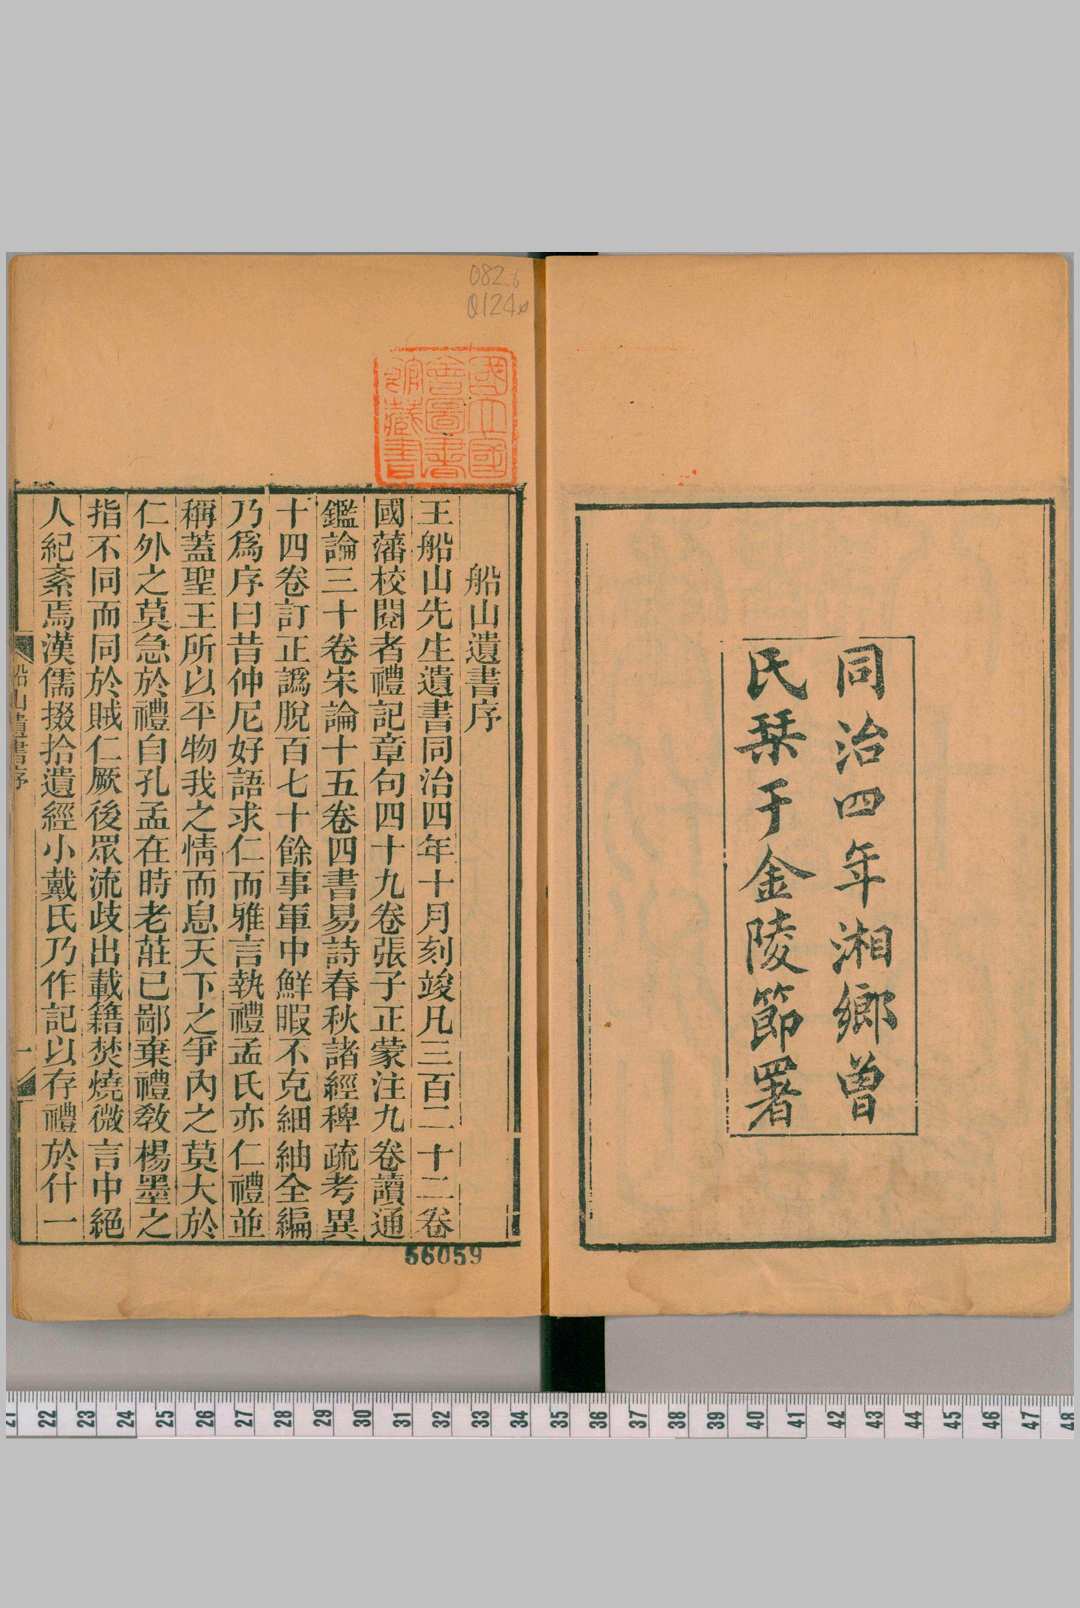 同治四年湘鄉曾
氏栞于金陵節署
082.6
國立國
會圖書
館藏書
船山遺書序
王船山先生遺書同治四年十月刻竣凡三百二十二卷
國藩校閱者禮記章句四十九卷張子正蒙注九卷讀通
鑑論三十卷宋論十五卷四書易詩春秋諸經稗疏考異
十四卷訂正譌脫百七十餘事軍中鮮暇不克細紬全編
乃爲序曰昔仲尼好語求仁而雅言執禮孟氏亦仁禮並
稱蓋聖王所以平物我之情而息天下之爭內之莫大於
仁外之莫急於禮自孔孟在時老莊已鄙棄禮敎楊墨之
指不同而同於賊仁厥後眾流歧出載籍焚燒微言中絕
人紀紊焉漢儒掇拾遺經小戴氏乃作記以存禮於什一
船山遺書序
一
56059
21 22 23 24 25 26 27 28 29 30 31 32 33 34 35 36 37 38 39 40 41 42 43 44 45 46 47 48